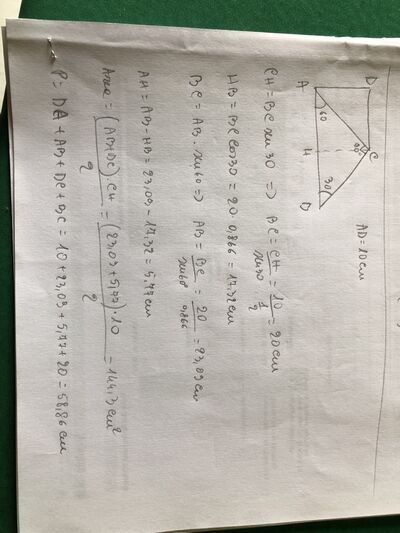 D
C
90
60
30
A
H
B
AD = 10 cm
CH = BC sin 30 => BC = CH / sin 30 = 10 / 1/2 = 20 cm
HB = BC cos 30 = 20 0,866 = 17,32 cm
BC = AB · sin 60 => AB = BC / sin 60 = 20 / 0,866 = 23,09 cm
AH = AB - HB = 23,09 - 17,32 = 5,77 cm
Area = (AB+DC) · CH / 2 = (23,09 + 5,77) · 10 / 2 = 144,3 cm²
P = DA + AB + DC + BC = 10 + 23,09 + 5,77 + 20 = 58,86 cm